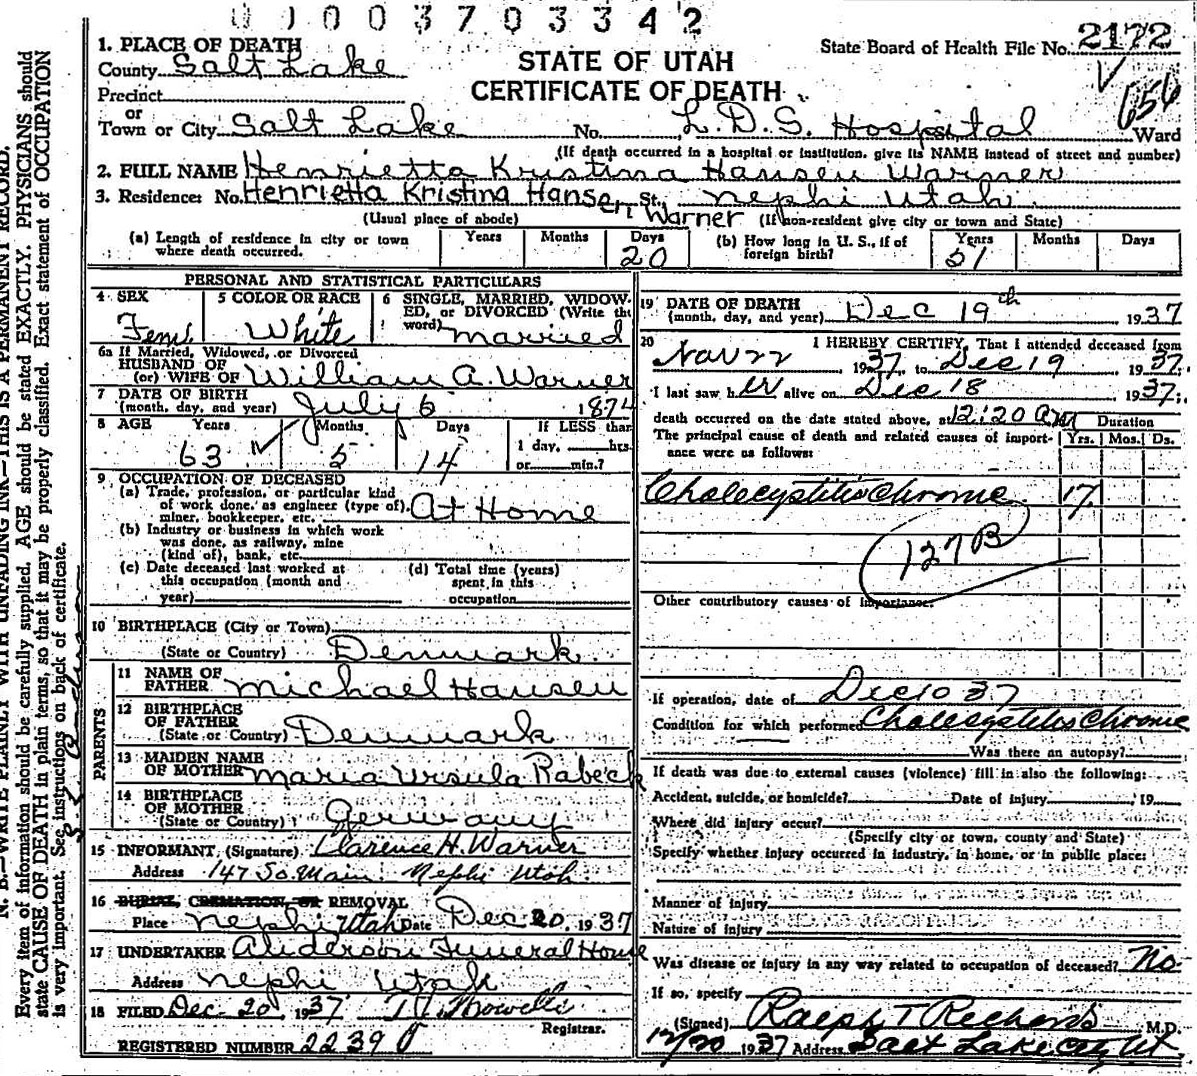 01003703342
1. PLACE OF DEATH
County Salt Lake
Precinct
or
Town or City Salt Lake No. L.D.S. Hospital Ward
STATE OF UTAH
CERTIFICATE OF DEATH
State Board of Health File No. 2172
656
(If death occurred in a hospital or institution, give its NAME instead of street and number)
2. FULL NAME Henrietta Kristina Hansen Warner
3. Residence: No. Henrietta Kristina Hansen Warner St. Nephi Utah
(Usual place of abode) (If non-resident give city or town and State)
(a) Length of residence in city or town where death occurred. Years Months Days 20
(b) How long in U. S., if of foreign birth? Years 51 Months Days
PERSONAL AND STATISTICAL PARTICULARS
4 SEX Fem.
5 COLOR OR RACE White
6 SINGLE, MARRIED, WIDOWED, or DIVORCED (Write the word) married
6a If Married, Widowed, or Divorced
HUSBAND OF
(or) WIFE OF William A. Warner
7 DATE OF BIRTH
(month, day, and year) July 6 1874
8 AGE Years 63 Months 5 Days 14 If LESS than 1 day, hrs. or min.?
9 OCCUPATION OF DECEASED
(a) Trade, profession, or particular kind of work done, as engineer (type of), miner, bookkeeper, etc. At Home
(b) Industry or business in which work was done, as railway, mine (kind of), bank, etc.
(c) Date deceased last worked at this occupation (month and year)
(d) Total time (years) spent in this occupation
10 BIRTHPLACE (City or Town)
(State or Country) Denmark
PARENTS
11 NAME OF FATHER Michael Hansen
12 BIRTHPLACE OF FATHER
(State or Country) Denmark
13 MAIDEN NAME OF MOTHER Maria Ursula Rabeck
14 BIRTHPLACE OF MOTHER
(State or Country) Germany
15 INFORMANT (Signature) Clarence H. Warner
Address 147 So. Main. Nephi Utah
16 BURIAL, CREMATION, OR REMOVAL
Place Nephi Utah Date Dec 20, 1937
17 UNDERTAKER Anderson Funeral Home
Address Nephi Utah
18 FILED Dec. 20, 1937
Registrar.
REGISTERED NUMBER 2239
19 DATE OF DEATH
(month, day, and year) Dec 19th 1937
20 I HEREBY CERTIFY, That I attended deceased from
Nov 22 1937, to Dec 19 1937.
I last saw her alive on Dec 18 1937;
death occurred on the date stated above, at 12:20 am Duration
The principal cause of death and related causes of importance were as follows: Yrs. Mos. Ds.
Cholecystitis Chronic 17
127B
Other contributory causes of importance:
If operation, date of Dec 10 37
Condition for which performed Cholecystitis Chronic
Was there an autopsy?
If death was due to external causes (violence) fill in also the following:
Accident, suicide, or homicide? Date of injury , 19
Where did injury occur?
(Specify city or town, county and State)
Specify whether injury occurred in industry, in home, or in public place:
Manner of injury
Nature of injury
Was disease or injury in any way related to occupation of deceased? No
If so, specify
(Signed) Ralph T Richards M.D.
12/20 1937 Address Salt Lake City Ut.
N. B.—WRITE PLAINLY WITH UNFADING INK—THIS IS A PERMANENT RECORD.
Every item of information should be carefully supplied. AGE should be stated EXACTLY. PHYSICIANS should
state CAUSE OF DEATH in plain terms, so that it may be properly classified. Exact statement of OCCUPATION
is very important. See instructions on back of certificate.